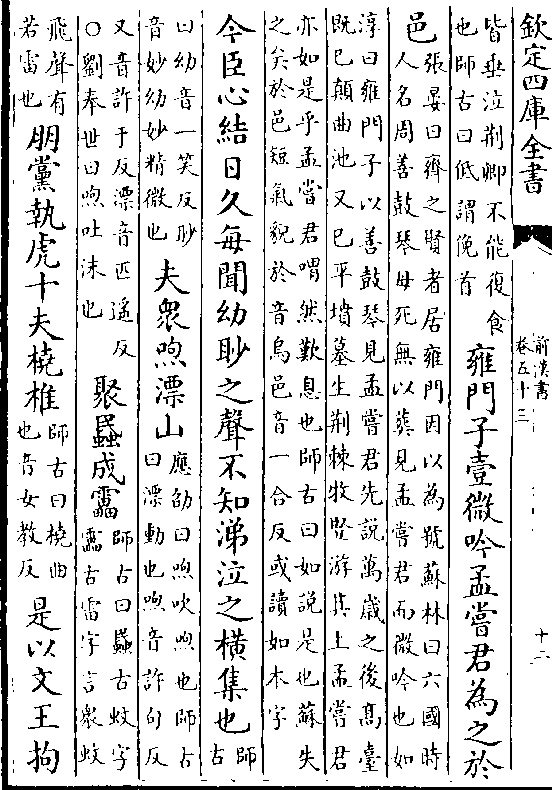 欽定四庫全書
前漢書
卷五十三
十二
皆垂泣荆卿不能復食
也師古曰低謂俛首
雍門子壹微吟孟嘗君為之於
邑
張晏曰齊之賢者居雍門因以為號蘇林曰六國時
人名周善鼓琴母死無以葬見孟嘗君而微吟也如
淳曰雍門子以善鼓琴見孟嘗君先說萬歲之後髙臺
既已顛曲池又已平墳墓生荆棘牧豎游其上孟嘗君
亦如是乎孟嘗君喟然歎息也師古曰如說是也蘇失
之矣於邑短氣貌於音烏邑音一合反或讀如本字
今臣心結日久每聞幼眇之聲不知涕泣之橫集也
師
古
曰幼音一笑反眇
音妙幼妙精微也
夫衆喣漂山
應劭曰喣吹喣也師古
曰漂動也喣音許句反
又音許于反漂音匹遥反
○劉奉世曰喣吐沫也
聚蟁成靁
師古曰蟁古蚊字
靁古雷字言衆蚊
飛聲有
若雷也
朋黨執虎十夫橈椎
師古曰橈曲
也音女教反
是以文王拘